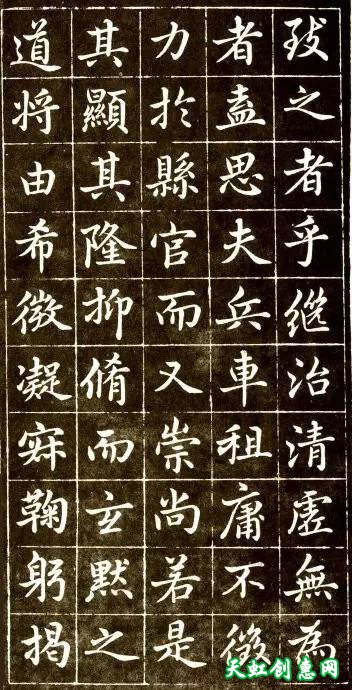 致之者乎继治清虛無為
者盍思夫兵車租庸不徵
力扵縣官而又崇尚若是
其顯其隆抑脩而玄默之
道将由希微凝寂鞠躬揭
天虹创意网